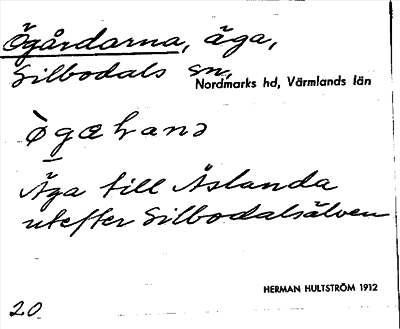 Ögårdarna, äga,
Silbodals sn,
Nordmarks hd, Värmlands län
ògæ̀hanə
Äga till Åslanda
utefter Silbodalsälven
HERMAN HULTSTRÖM 1912
20